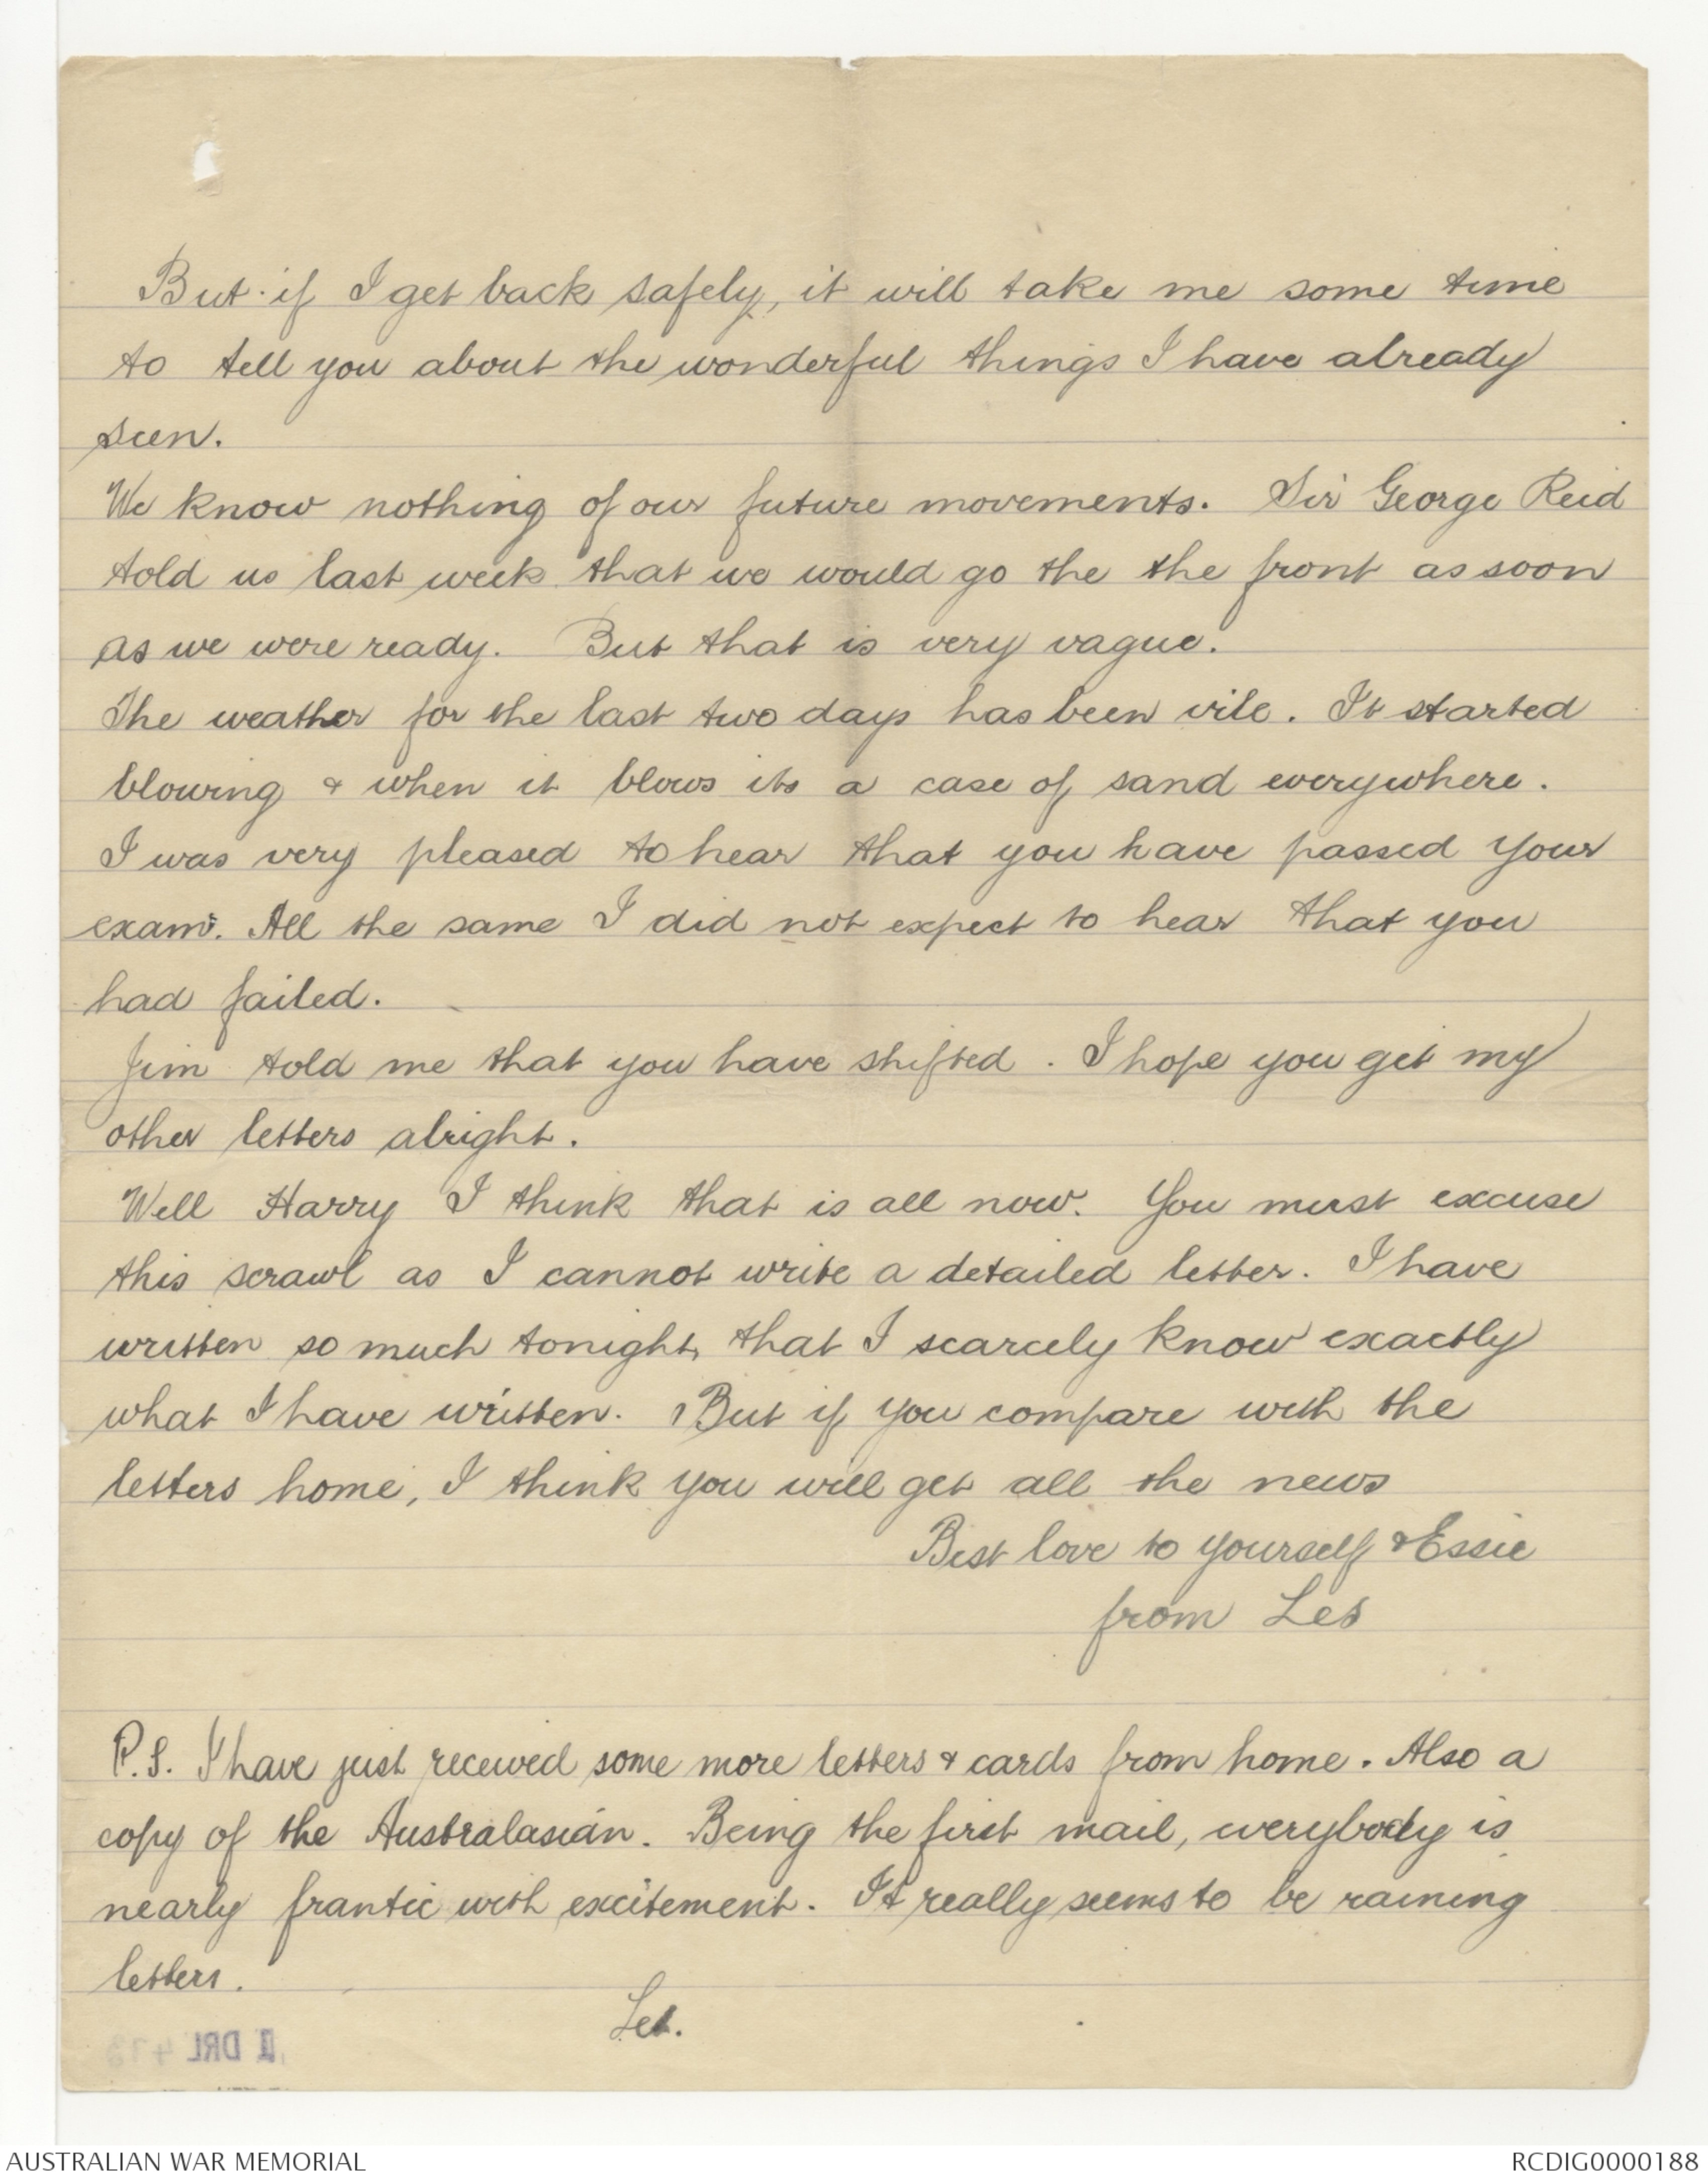 But if I get back safely, it will take me some time
to tell you about the wonderful things I have already
seen.
We know nothing of our future movements. Sir George Reid
told us last week that we would go the the front as soon
as we were ready. But that is very vague.
The weather for the last two days has been vile. It started
blowing & when it blows its a case of sand everywhere.
I was very pleased to hear that you have passed your
exam. All the same I did not expect to hear that you
had failed.
Jim told me that you have shifted. I hope you get my
other letters alright.
Well Harry I think that is all now. You must excuse
this scrawl as I cannot write a detailed letter. I have
written so much tonight, that I scarcely know exactly
what I have written. But if you compare with the
letters home, I think you will get all the news
Best love to yourself & Essie
from Les
P.S. I have just received some more letters & cards from home. Also a
copy of the Australasian. Being the first mail, everybody is
nearly frantic with excitement. It really seems to be raining
letters.
Les.
AUSTRALIAN WAR MEMORIAL
RCDIG0000188